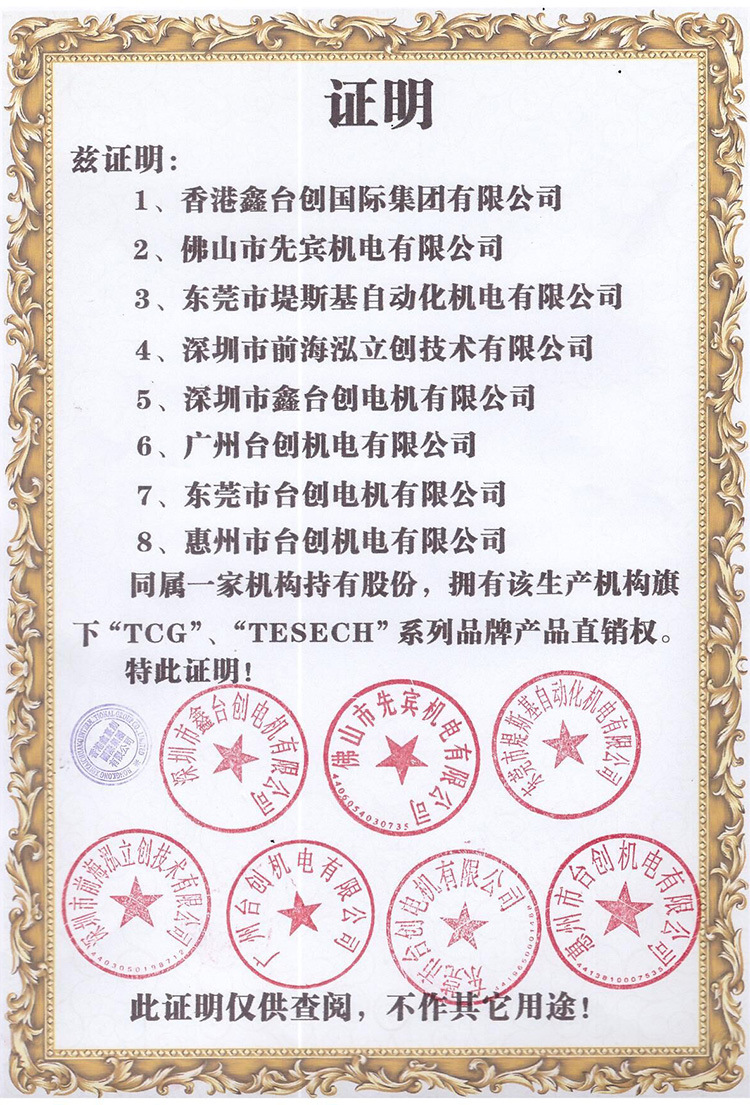 证明
兹证明：
1、香港鑫台创国际集团有限公司
2、佛山市先宾机电有限公司
3、东莞市堤斯基自动化机电有限公司
4、深圳市前海泓立创技术有限公司
5、深圳市鑫台创电机有限公司
6、广州台创机电有限公司
7、东莞市台创电机有限公司
8、惠州市台创机电有限公司
同属一家机构持有股份，拥有该生产机构旗
下“TCG”、“TESECH”系列品牌产品直销权。
特此证明！
深圳市鑫台创电机有限公司
佛山市先宾机电有限公司
4406054030735
东莞市堤斯基自动化机电有限公司
深圳市前海泓立创技术有限公司
4403050198712
广州台创机电有限公司
东莞市台创电机有限公司
惠州市台创机电有限公司
4413810007535
此证明仅供查阅，不作其它用途！